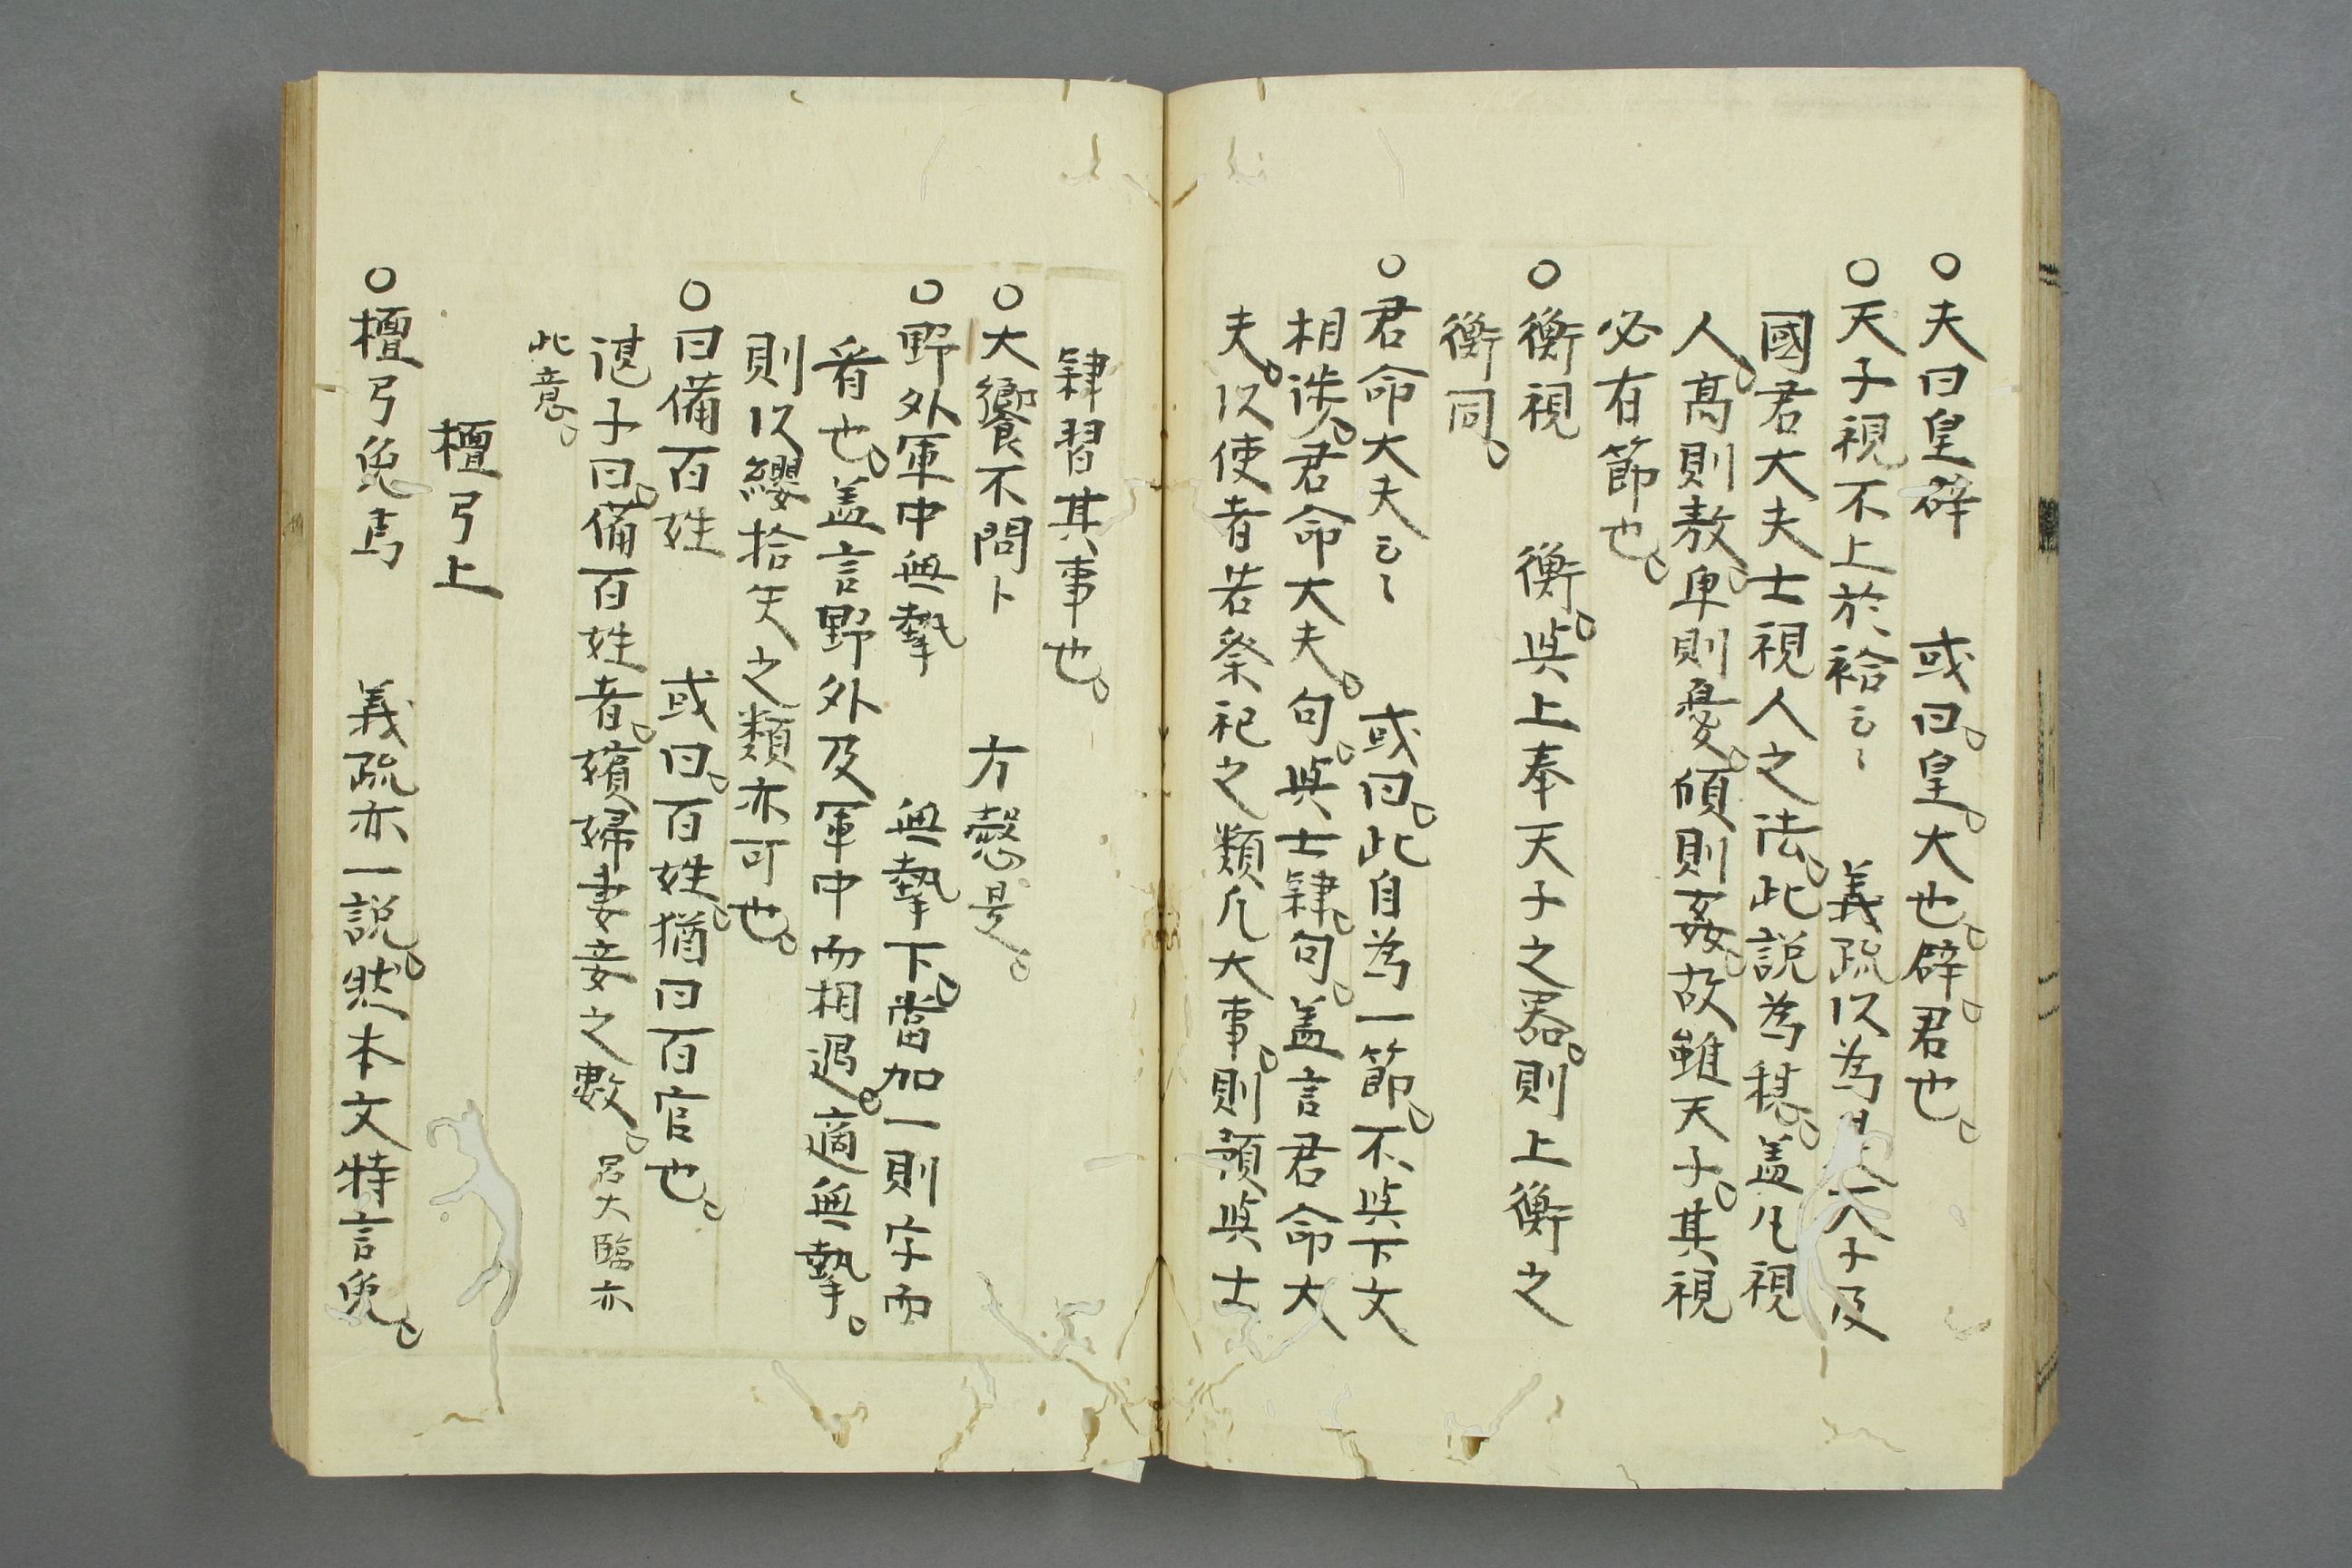 ○夫曰皇辟　或曰。皇。大也。辟。君也。
○天子視不上於袷云々　義疏以為天子及
國君大夫士視人之法。此説為穏。盖凡視
人。高則敖。卑則憂。傾則姦。故雖天子。其視
必有節也。
○衡視　衡。與上奉天子之器。則上衡之
衡同。
○君命大夫云々　或曰。此自為一節。不與下文
相渉。君命大夫。句。與士肄。句。盖言君命大
夫。以使者若祭祀之類凡大事。則預與士
肄習其事也。
○大饗不問卜　方慤是。
○野外軍中無摯　無摯下。當加一則字而
看也。盖言野外及軍中而相遇。適無摯。
則以纓拾矢之類亦可也。
○曰備百姓　或曰。百姓。猶曰百官也。
諶子曰。備百姓者。嬪婦妻妾之數。呂大臨亦
此意。
檀弓上
○檀弓免焉　義疏亦一説。然本文特言免。